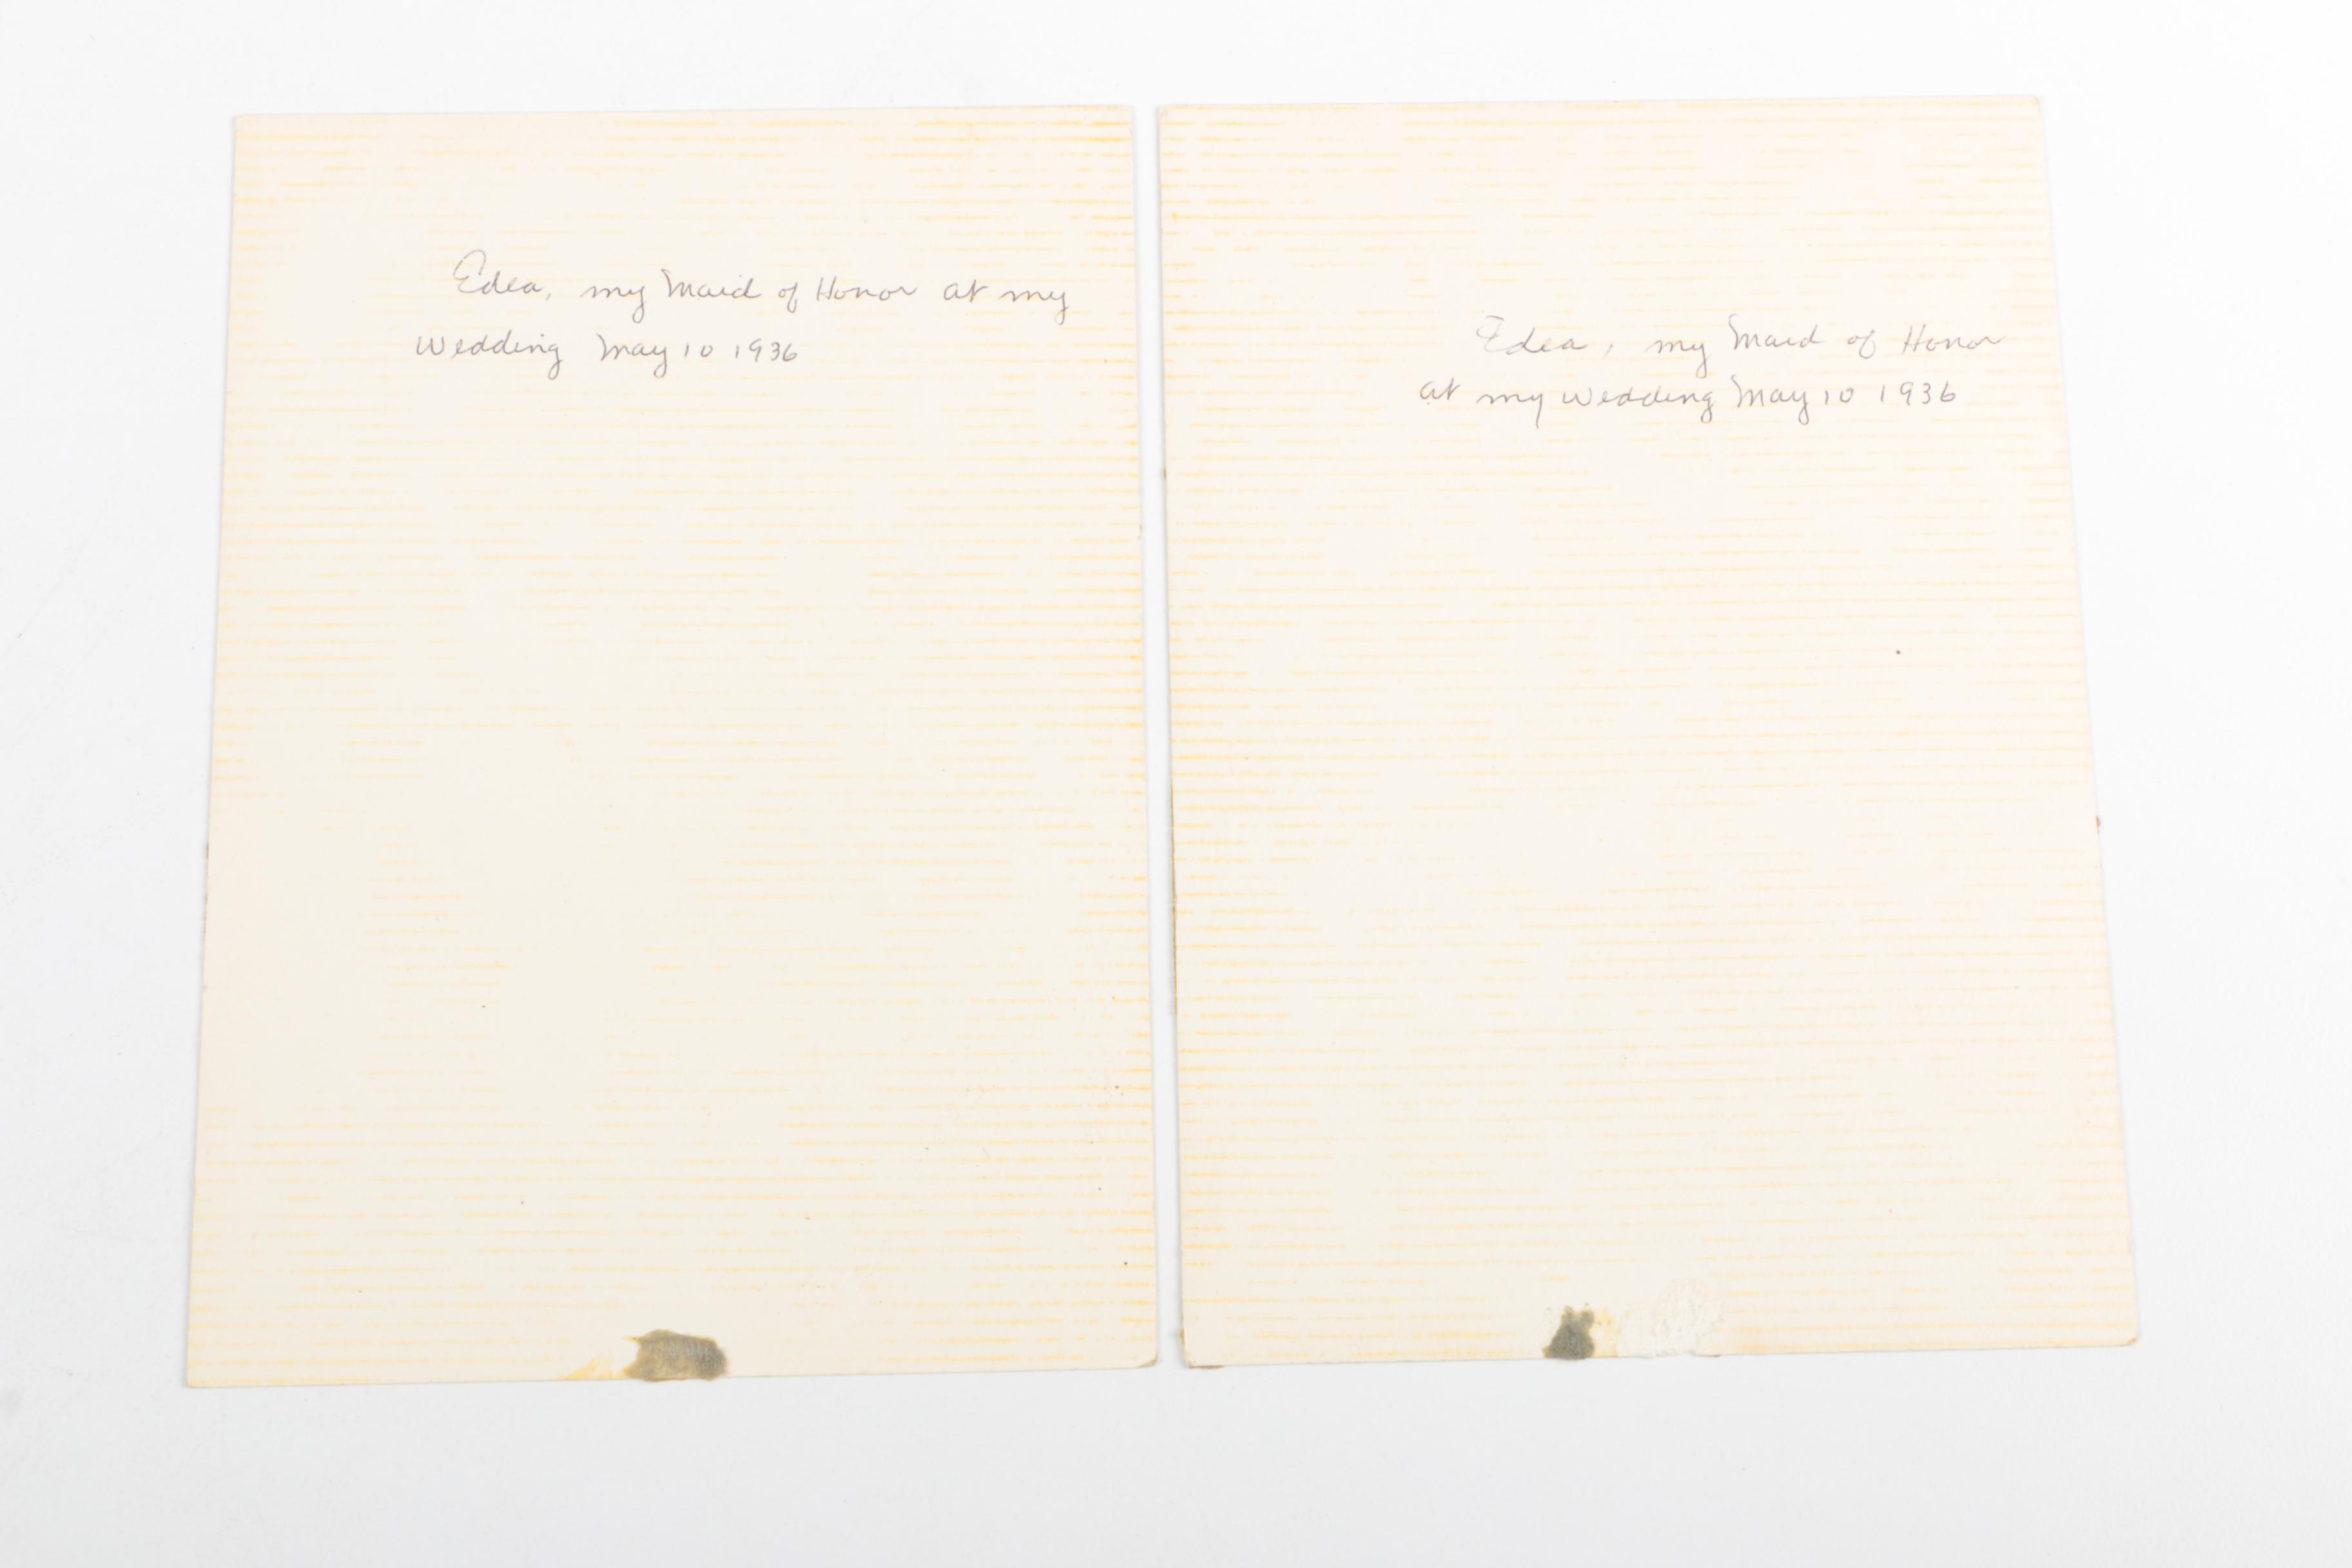 Edea, my Maid of Honor at my
Wedding May 10 1936
Edea, my Maid of Honor
at my Wedding May 10 1936